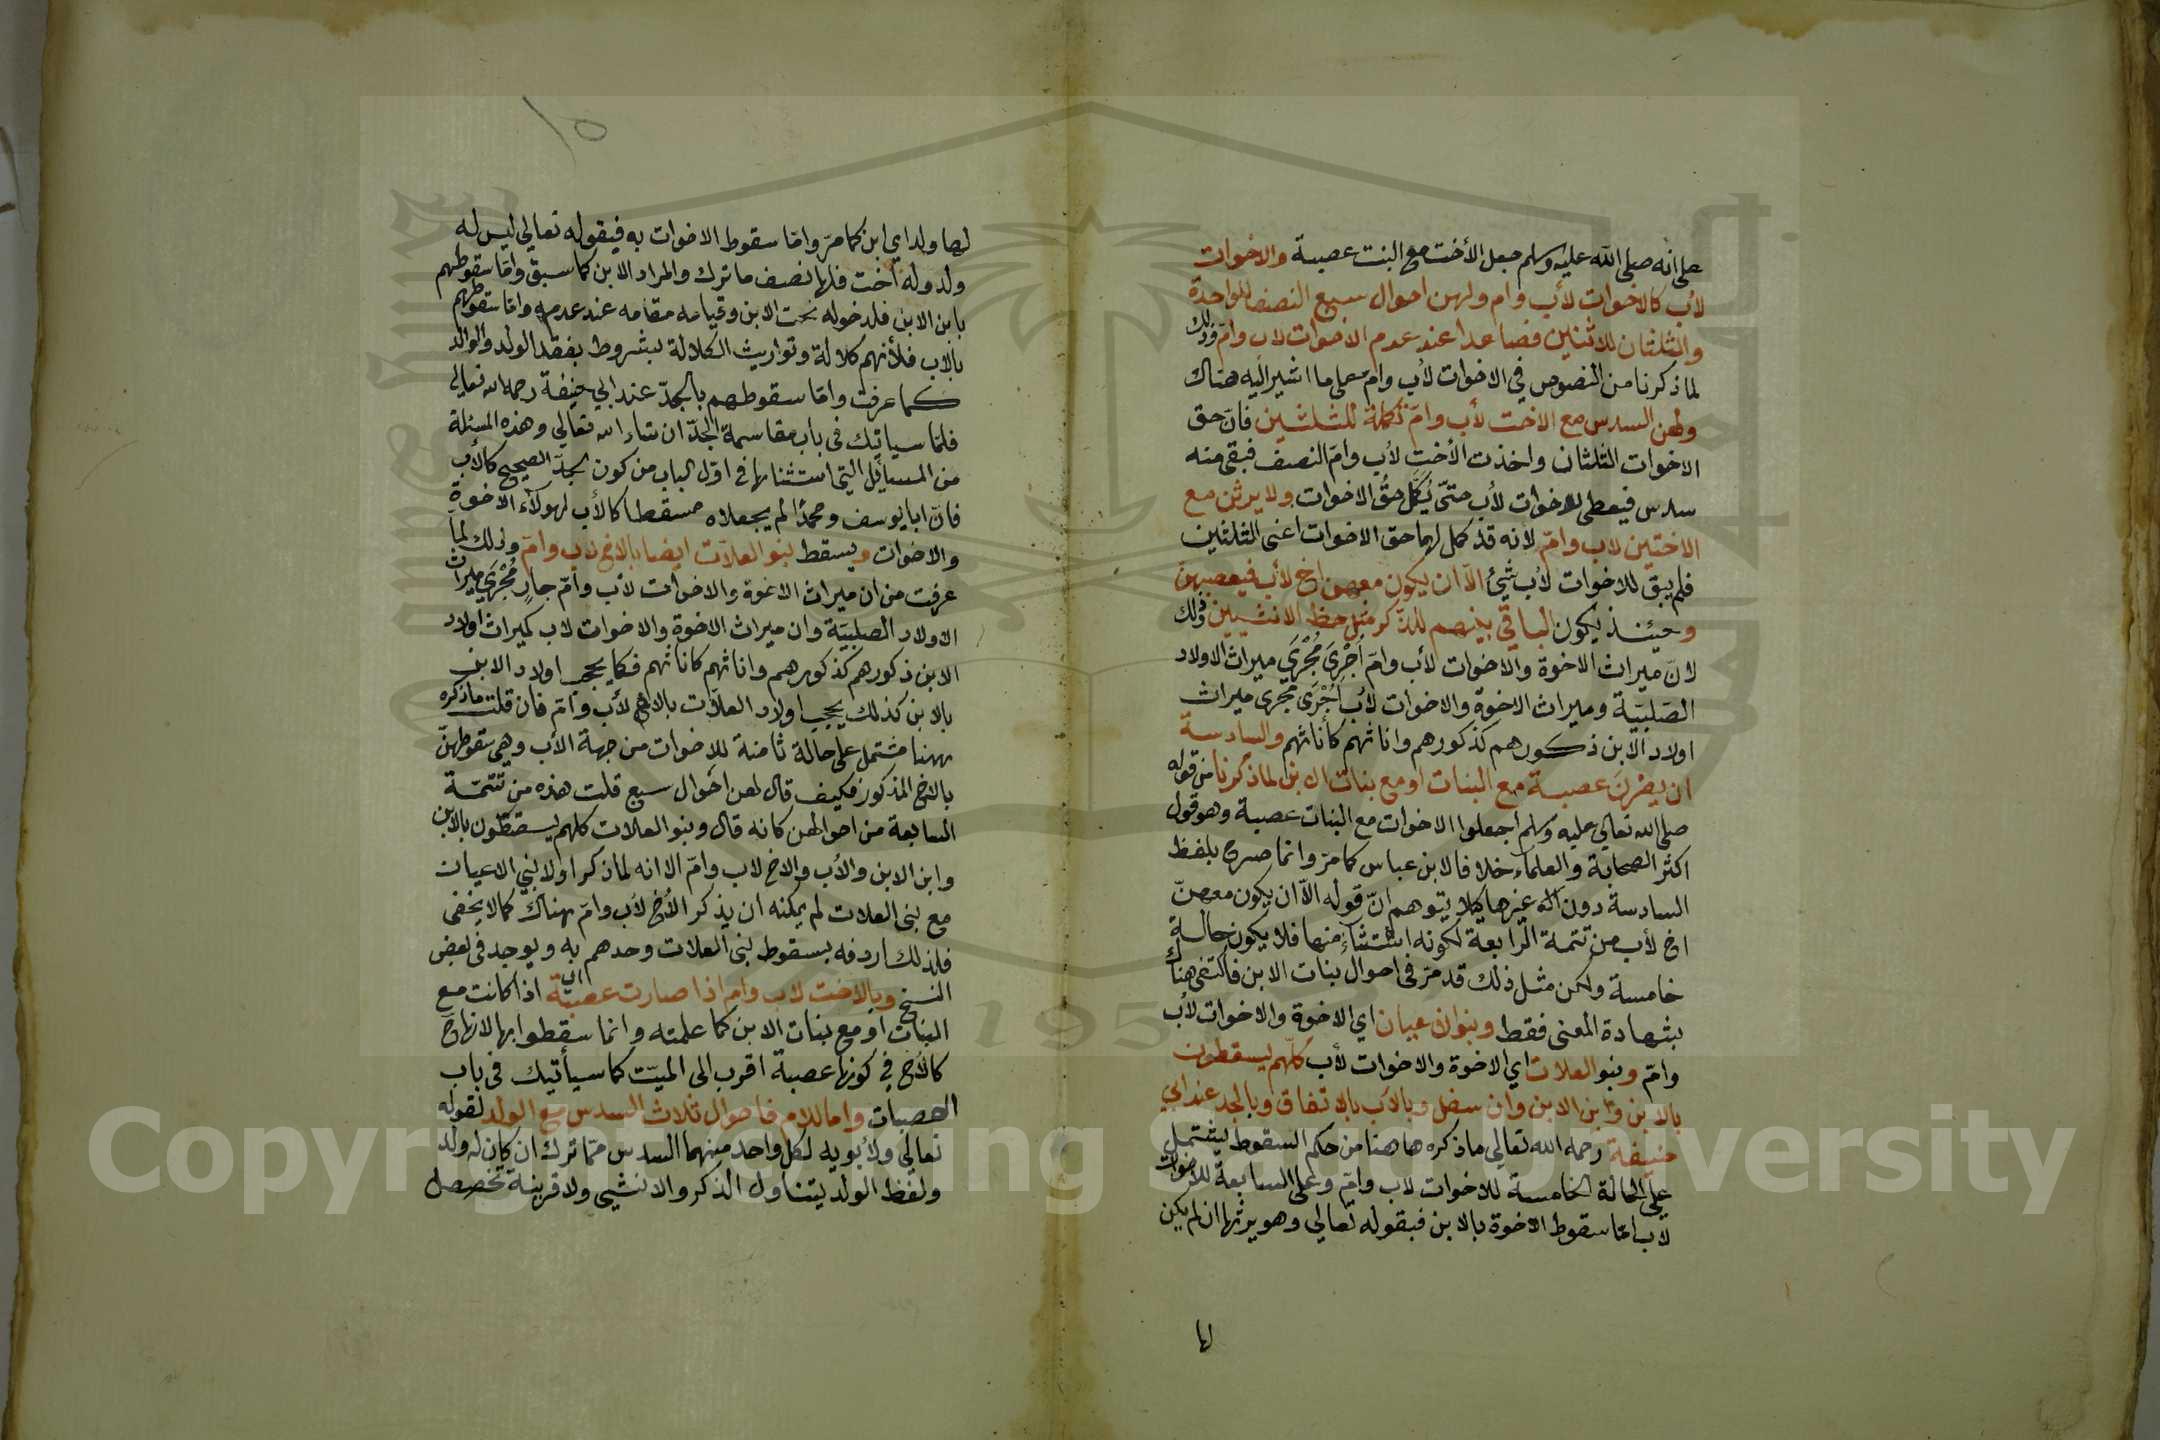 على انه صلى الله عليه وسلم جعل الأخت مع البنت عصبة والاخوات
لأب كالاخوات لأب وام ولهن احوال سبع النصف للواحدة
والثلثان للاثنين فصاعدا عند عدم الاخوات لاب وامّ وذلك
لما ذكرنا من النصوص في الاخوات لأب وام على ما اشير اليه هناك
ولهن السدس مع الاخت لأب وامّ تكملة للثلثين فانّ حق
الاخوات الثلثان واخذت الأخت لأب وامّ النصف فبقى منه
سدس فيعطى للاخوات لأب حتىّ يُكَمَّل حقُّ الاخوات ولا يرثن مع
الاختين لاب وامّ لانه قد كمل لهما حق الاخوات اعنى الثلثين
فلم يبق للاخوات لأب شئ الاّ ان يكون معهن اخ لأب فيعصبهن
وحينئذ يكون الباقي بينهم للذّكر مثل حظ الانثيين وذلك
لانّ ميراث الاخوة والاخوات لأب وامّ اُجْرِىَ مُجْرَى ميراث الاولاد
الصّلبيّة وميراث الاخوة والاخوات لأب اُجْرَى مجرى ميراث
اولاد الابن ذكورهم كذكورهم واناثهم كأناثهم والسادسة
ان يصْرنَ عصبة مع البنات او مع بنات الابن لما ذكرنا من قوله
صلى الله تعالى عليه وسلم اجعلوا الاخوات مع البنات عصبة وهو قول
اكثر الصحابة والعلماء خلافا لابن عباس كما مرّ وانما صرح بلفظ
السادسة دون غيرها كيلا يتوهم انّ قوله الاّ ان يكون معهنّ
اخ لأب من تتمة الرّابعة لكونه استثناء منها فلا يكون حالة
خامسة ولكن مثل ذلك قد مرّ فى احوال بنات الابن فاكتفى هناك
بشهادة المعنى فقط وبنوا الاعيان اي الاخوة والاخوات لأب
وامّ وبنو العلات اي الاخوة والاخوات لأب كلّهم يسقطون
بالابن وابن الابن وان سفل وبالأب بالاتفاق وبالجد عند ابي
حنيفة رحمه الله تعالى ما ذكره هاهنا من حكم السقوط ليشتمل
على الحالة الخامسة للاخوات لاب وامّ وعلى السابعة للاخوات
لاب امّا سقوط الاخوة بالابن فبقوله تعالي وهو يرثها ان لم يكن
لها
لها ولد اي ابن كما مرّ وامّا سقوط الاخوات به فبقوله تعالي ليس له
ولد وله اخت فلها نصف ما ترك والمراد الابن كما سبق وامّا سقوطهم
بابن الابن فلدخوله تحت الابن وقيامه مقامه عند عدمه وامّا سقوطهم
بالأب فلأنهم كلالة وتواريث الكلالة بشروط بفقد الولد والوالد
كما عرفت وامّا سقوطهم بالجدّ عند ابي حنيفة رحمه الله تعالي
فلما سياتيك في باب مقاسمة الجدّ ان شاء الله تعالي وهذه المسئلة
من المسايل التي استثناها في اوّل الباب من كون الجدّ الصحيح كالأب
فانّ ابا يوسف ومحمدًا لم يجعلاه مسقطا كالأب لهولاء الاخوة
والاخوات ويسقط بنو العلاّت ايضا بالاخ لاب وامّ وذلك لما
عرفت من ان ميراث الاخوة والاخوات لأب وامّ جارٍ مُجْرَى ميراث
الاولاد الصلبيّة وان ميراث الاخوة والاخوات لاب كميراث اولاد
الابن ذكورهم كذكورهم واناثهم كاناثهم فكما يحجب اولاد الابن
بالابن كذلك يحجب اولاد العلاّت بالاخ لأب وامّ فان قلت ما ذكره
ههنا مشتمل على حالة ثامنة للاخوات من جهة الأب وهي سقوطهنّ
بالاخ المذكور فكيف قال لهن احوال سبع قلت هذه من تتمّة
السابعة من احوالهن كانه قال وبنو العلات كلهم يسقطون بالابن
وابن الابن والأب والاخ لاب وامّ الا انه لما ذكر اولا بني الاعيان
مع بنى العلات لم يمكنه ان يذكر الأخ لأب وامّ هناك كما لا يخفى
فلذلك اردفه بسقوط بنى العلات وحدهم به ويوجد فى بعض
النسخ وبالاخت لاب وام اذا صارت عصبة اى اذا كانت مع
البنات او مع بنات الابن كما علمته وانما سقطوا بها لانها ح
كالأخ في كونها عصبة اقرب الى الميّت كما سيأتيك فى باب
العصبات واما للام فاحوال ثلاث السدس مع الولد لقوله
تعالي ولأبويه لكل واحد منهما السدس ممّا ترك ان كان له ولد
ولفظ الولد يتناول الذكر والانثى ولا قرينة تخصص
1957
Copyright © King Saud University